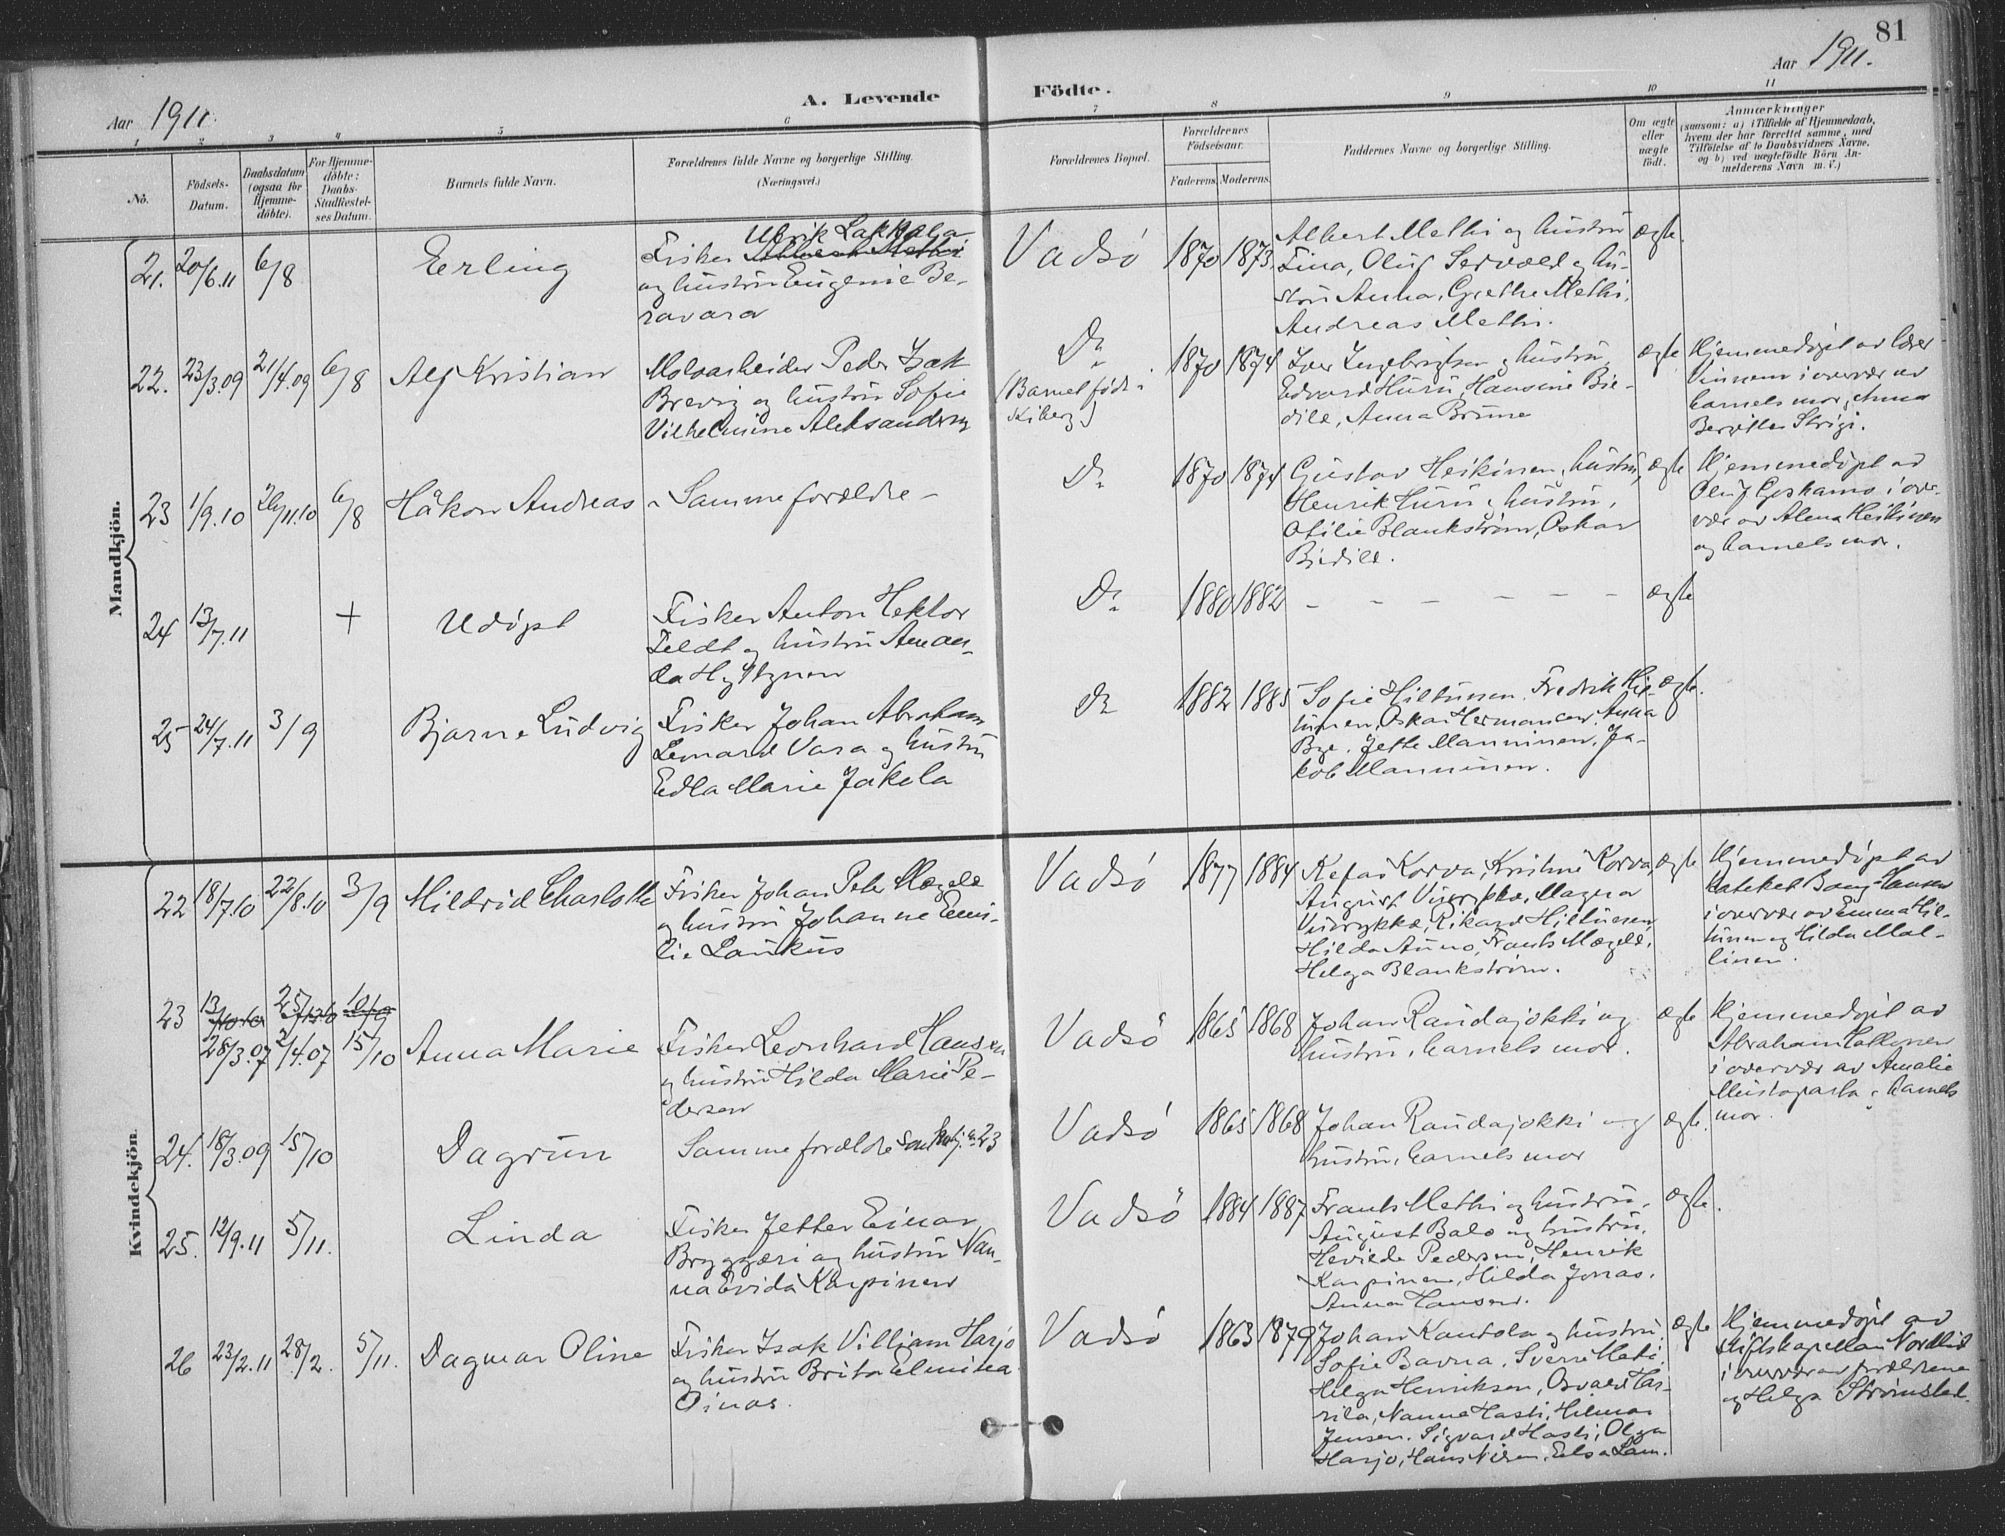 81
Aar 1911.
A. Levende Födte.
Aar 1911.
1 2 3 4 5 6 7 8 9 10 11
No.
Födsels-Datum.
Daabsdatum (ogsaa for Hjemme-döbte).
For Hjemme-döbte: Daabs-Stadfæstel-ses Datum.
Barnets fulde Navn.
Forældrenes fulde Navne og borgerlige Stilling.
(Næringsvei.)
Forældrenes Bopæl.
Forældrenes Födselsaar.
Faderens. Moderens.
Faddernes Navne og borgerlige Stilling.
Om ægte eller uægte födt.
Anmærkninger
(saasom: a) i Tilfælde af Hjemmedaab,
hvem der har forrettet samme, med
Tilföielse af to Daabsvidners Navne,
og b) ved uægtefödte Börn An-
melderens Navn m. V.)
Mandkjön.
21. 20/6.11 6/8 Erling
Fisker Ulrik Lakkala
og hustru Eugenie Be-
ravara
Vadsö 1870 1873
Albert Methi og hustru
Lina, Oluf Servold og hu-
stru Anna, Grethe Methi,
Andreas Methi.
ægte.
22. 23/3.09 21/4.09 6/8 Alf Kristian
Malvarbeider Peder Isak
Brevig og hustru Sofie
Vilhelmine Aleksandersen
Do
(Barnet född i
Kiberg)
1870 1874
Iver Ingebrigtsen og hustru,
Edvard Huru, Hansine Bie-
dilæ, Anna Brune
ægte
Hjemmedöpt av lærer
Vinnem i overvær av
barnets mor og Anna
Bergitte Strigi.
23 1/9.10 26/11.10 6/8 Håkon Andreas
- Samme forældre -
Do 1870 1874
Gustav Heikinen, hustru,
Henrik Huru og hustru,
Otilie Blankström, Oskar
Biedilæ.
ægte
Hjemmedöpt av
Oluf Goshamo i over-
vær av Alena Heikinen
og barnets mor.
24 13/7.11 + Udöpt
Fisker Anton Hektor
Feldt og hustru Aman-
da Hyttynen
Do 1880 1882 - - - - - - ægte
25 24/7.11 3/9 Bjarne Ludvig
Fisker Johan Abraham
Lenard Vara og hustru
Edla Marie Jakola
Do 1882 1885
Sofie Hiltunen. Fredrik Hil-
tunen, Oskar Hermansen, Anna
Bye. Jette Manninen, Ja-
kob Manninen.
ægte.
Kvindekjön.
22 18/7.10 22/8.10 3/9 Hildrid Charlotte
Fisker Johan Peter Mægelæ
og hustru Johanne Emi-
lie Laukus
Vadsö 1877 1884
Kefas Korva, Kristine Korva,
August Vinrykka, Magna
Vinrykka, Rikard Hiltunen,
Hilda Auno, Frants Mægelæ,
Helga Blankström.
ægte
Hjemmedöpt av
kateket Bang-Hansen
i overvær av Emma Hil-
tunen og Hilda Mal-
linen.
23 28/3.07 2/4.07 15/10 Anna Marie
Fisker Leonhard Hansen
og hustru Hilda Marie Pe-
dersen
Vadsö 1865 1868
Johan Raudajokki og
hustru, barnets mor.
ægte
Hjemmedöpt av
Abraham Lallonen
i overvær av Amalie
Mustaparta og barnets
mor.
24. 18/3.09 15/10 Dagrun
Samme forældre som kvkj. n. 23
Vadsö 1865 1868
Johan Raudajokki og
hustru, barnets mor
ægte.
25. 12/9.11 5/11. Linda
Fisker Jetter Einar
Bryggæri og hustru Nan-
na Evida Karpinen
Vadsö 1884 1887
Frants Methi og hustru,
August Balo og hustru,
Hevilde Pedersen, Henrik
Karpinen, Hilda Jonas.
Anna Hansen.
ægte.
26 23/2.11 28/2. 5/11. Dagmar Oline
Fisker Isak Villiam Harjo
og hustru Brita Elmina
Oinas.
Vadsö 1863 1879
Johan Kantola og hustru,
Sofie Bavna, Sverre Mati,
Helga Henriksen, Osvald Har-
rila, Nanna Hasti, Hilmar
Jensen. Sigvard Hasti, Olga
Harjo, Hans Nilsen, Elsa Lam.
ægte
Hjemmedöpt av
stiftskapellan Nordlid
i overvær av forældrene
og Helga Strömsted.